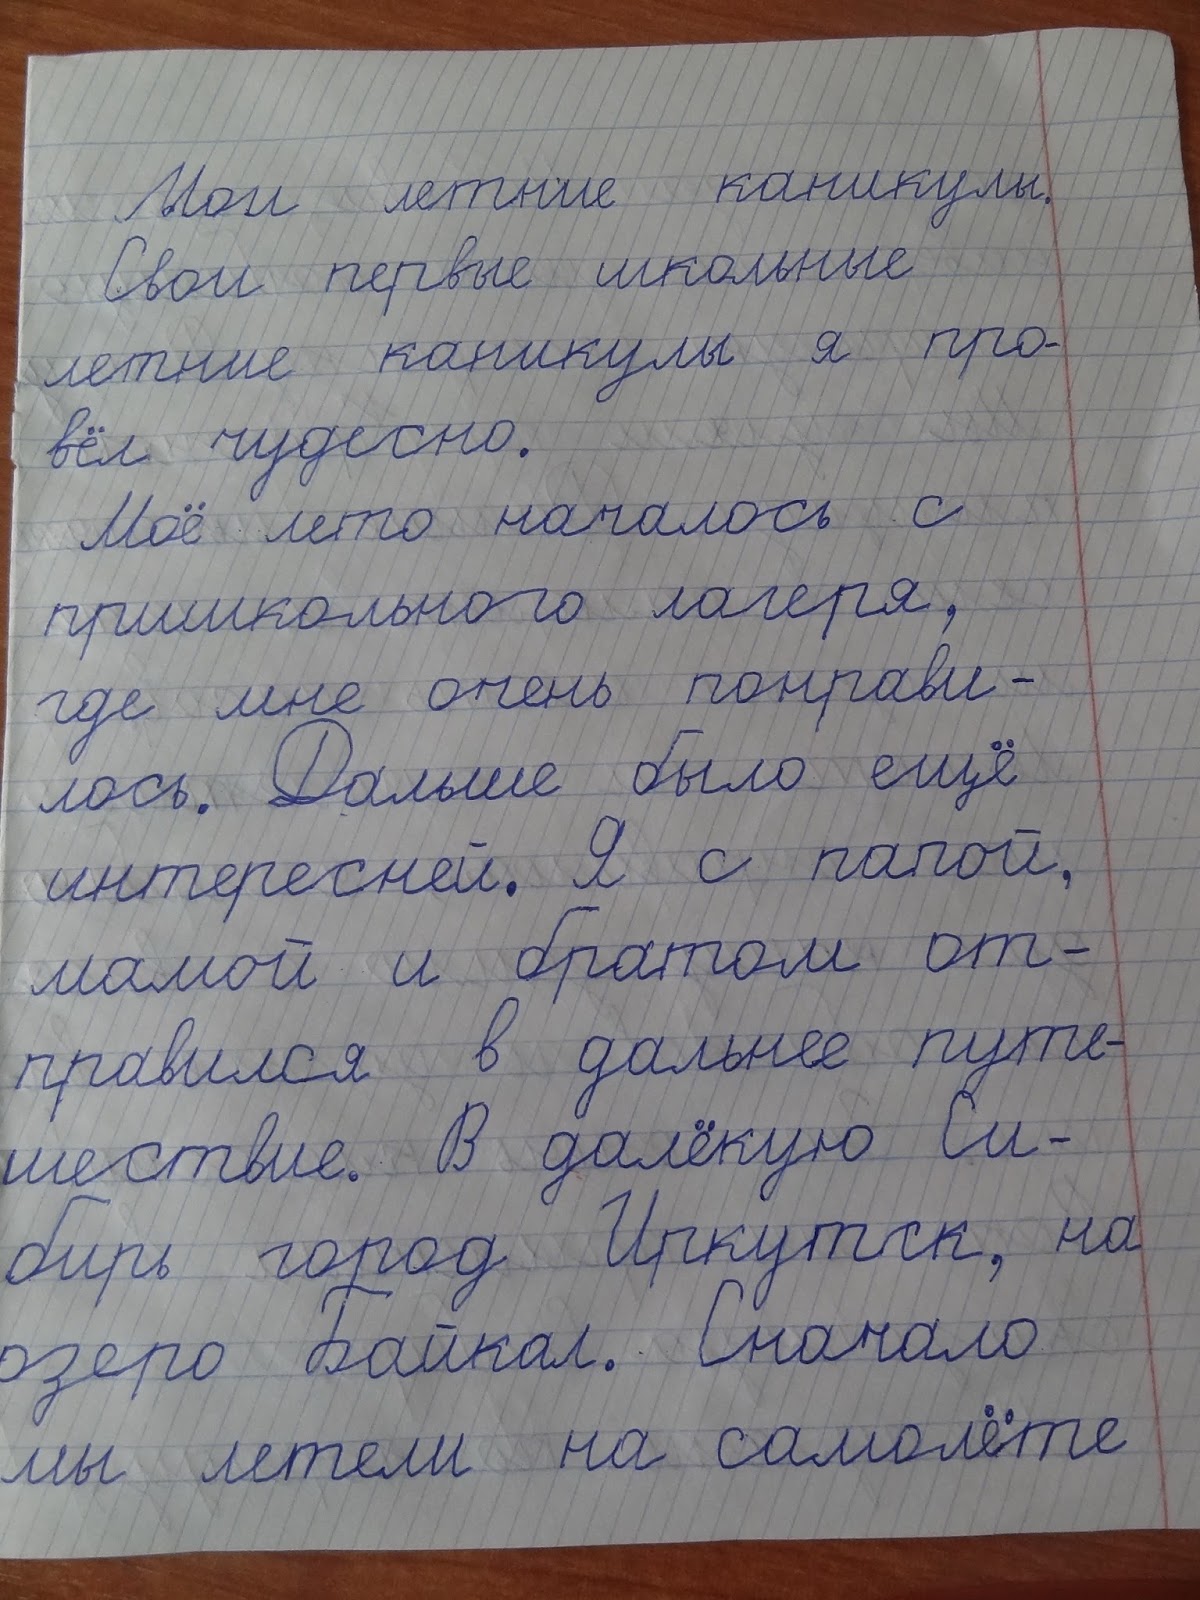 Мои летние каникулы.
Свои первые школьные
летние каникулы я про-
вёл чудесно.
Моё лето началось с
пришкольного лагеря,
где мне очень понрави-
лось. Дальше было ещё
интересней. Я с папой,
мамой и братом от-
правился в дальнее путе-
шествие. В далёкую Си-
бирь город Иркутск, на
озеро Байкал. Сначало
мы летели на самолёте